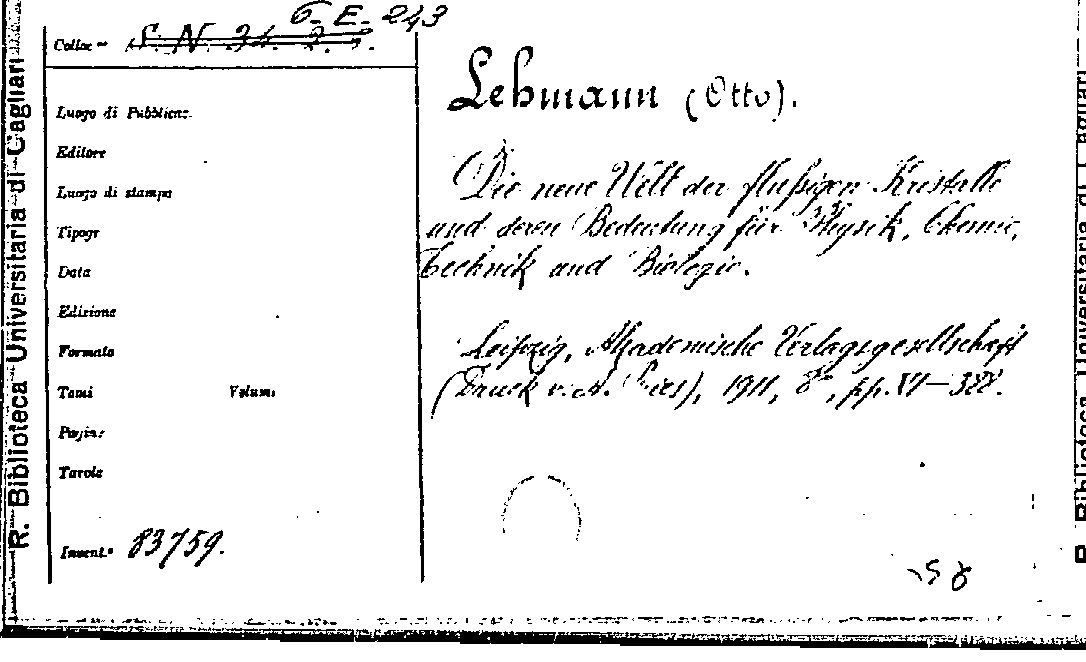 6. E. 243
Colloc - S. N. 34. 2. 5.
Luogo di Pubblicaz.
Editore
Luogo di stampa
Tipogr
Data
Edizione
Formato
Tomi Volumi
Pagine
Tavole
Invent.° 83759.
Lehmann (Otto).
Die neue Welt der flüßigen Kristalle
und deren Bedeutung für Physik, Chemie,
Technik und Biologie.
Leipzig, Akademische Verlagsgesellschaft
(Druck v. A. Pries), 1911, 8°, pp. VI—388.
R. Biblioteca Universitaria di Cagliari
R. Biblioteca Universitaria di Cagliari